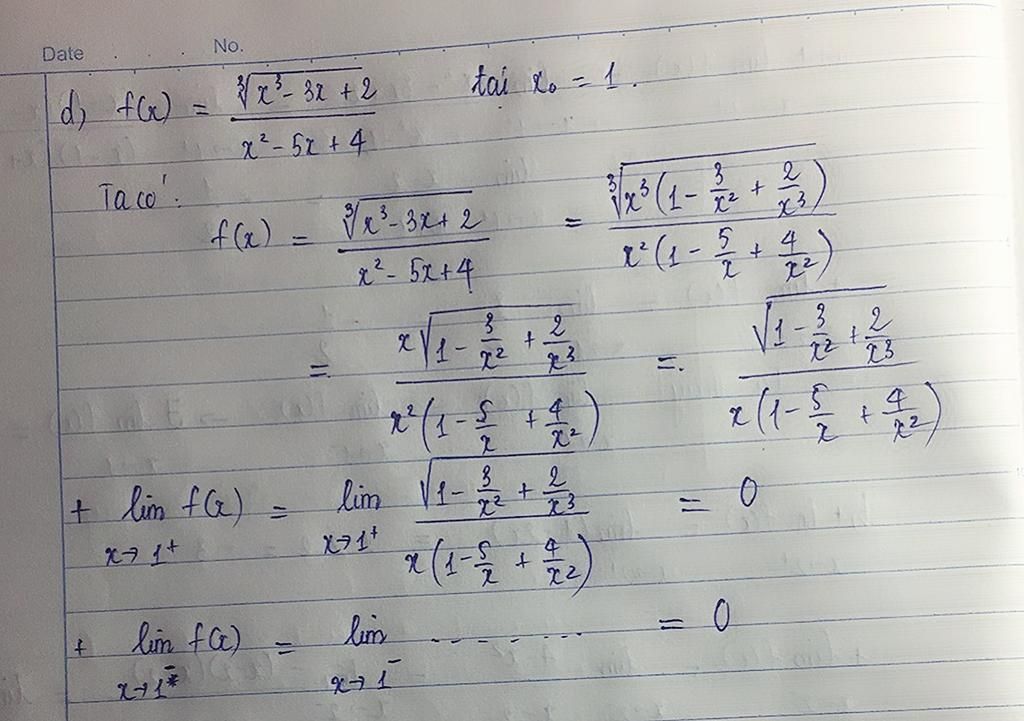 Date . . . No.
d) f(x) = ∛(x³ - 3x + 2) / (x² - 5x + 4) tại x₀ = 1.
Ta có:
f(x) = ∛(x³ - 3x + 2) / (x² - 5x + 4) = ∛(x³(1 - 3/x² + 2/x³)) / (x²(1 - 5/x + 4/x²))
= x√(1 - 3/x² + 2/x³) / (x²(1 - 5/x + 4/x²)) = √(1 - 3/x² + 2/x³) / (x(1 - 5/x + 4/x²))
+ lim_{x→1⁺} f(x) = lim_{x→1⁺} √(1 - 3/x² + 2/x³) / (x(1 - 5/x + 4/x²)) = 0
+ lim_{x→1⁻} f(x) = lim_{x→1⁻} ------- = 0